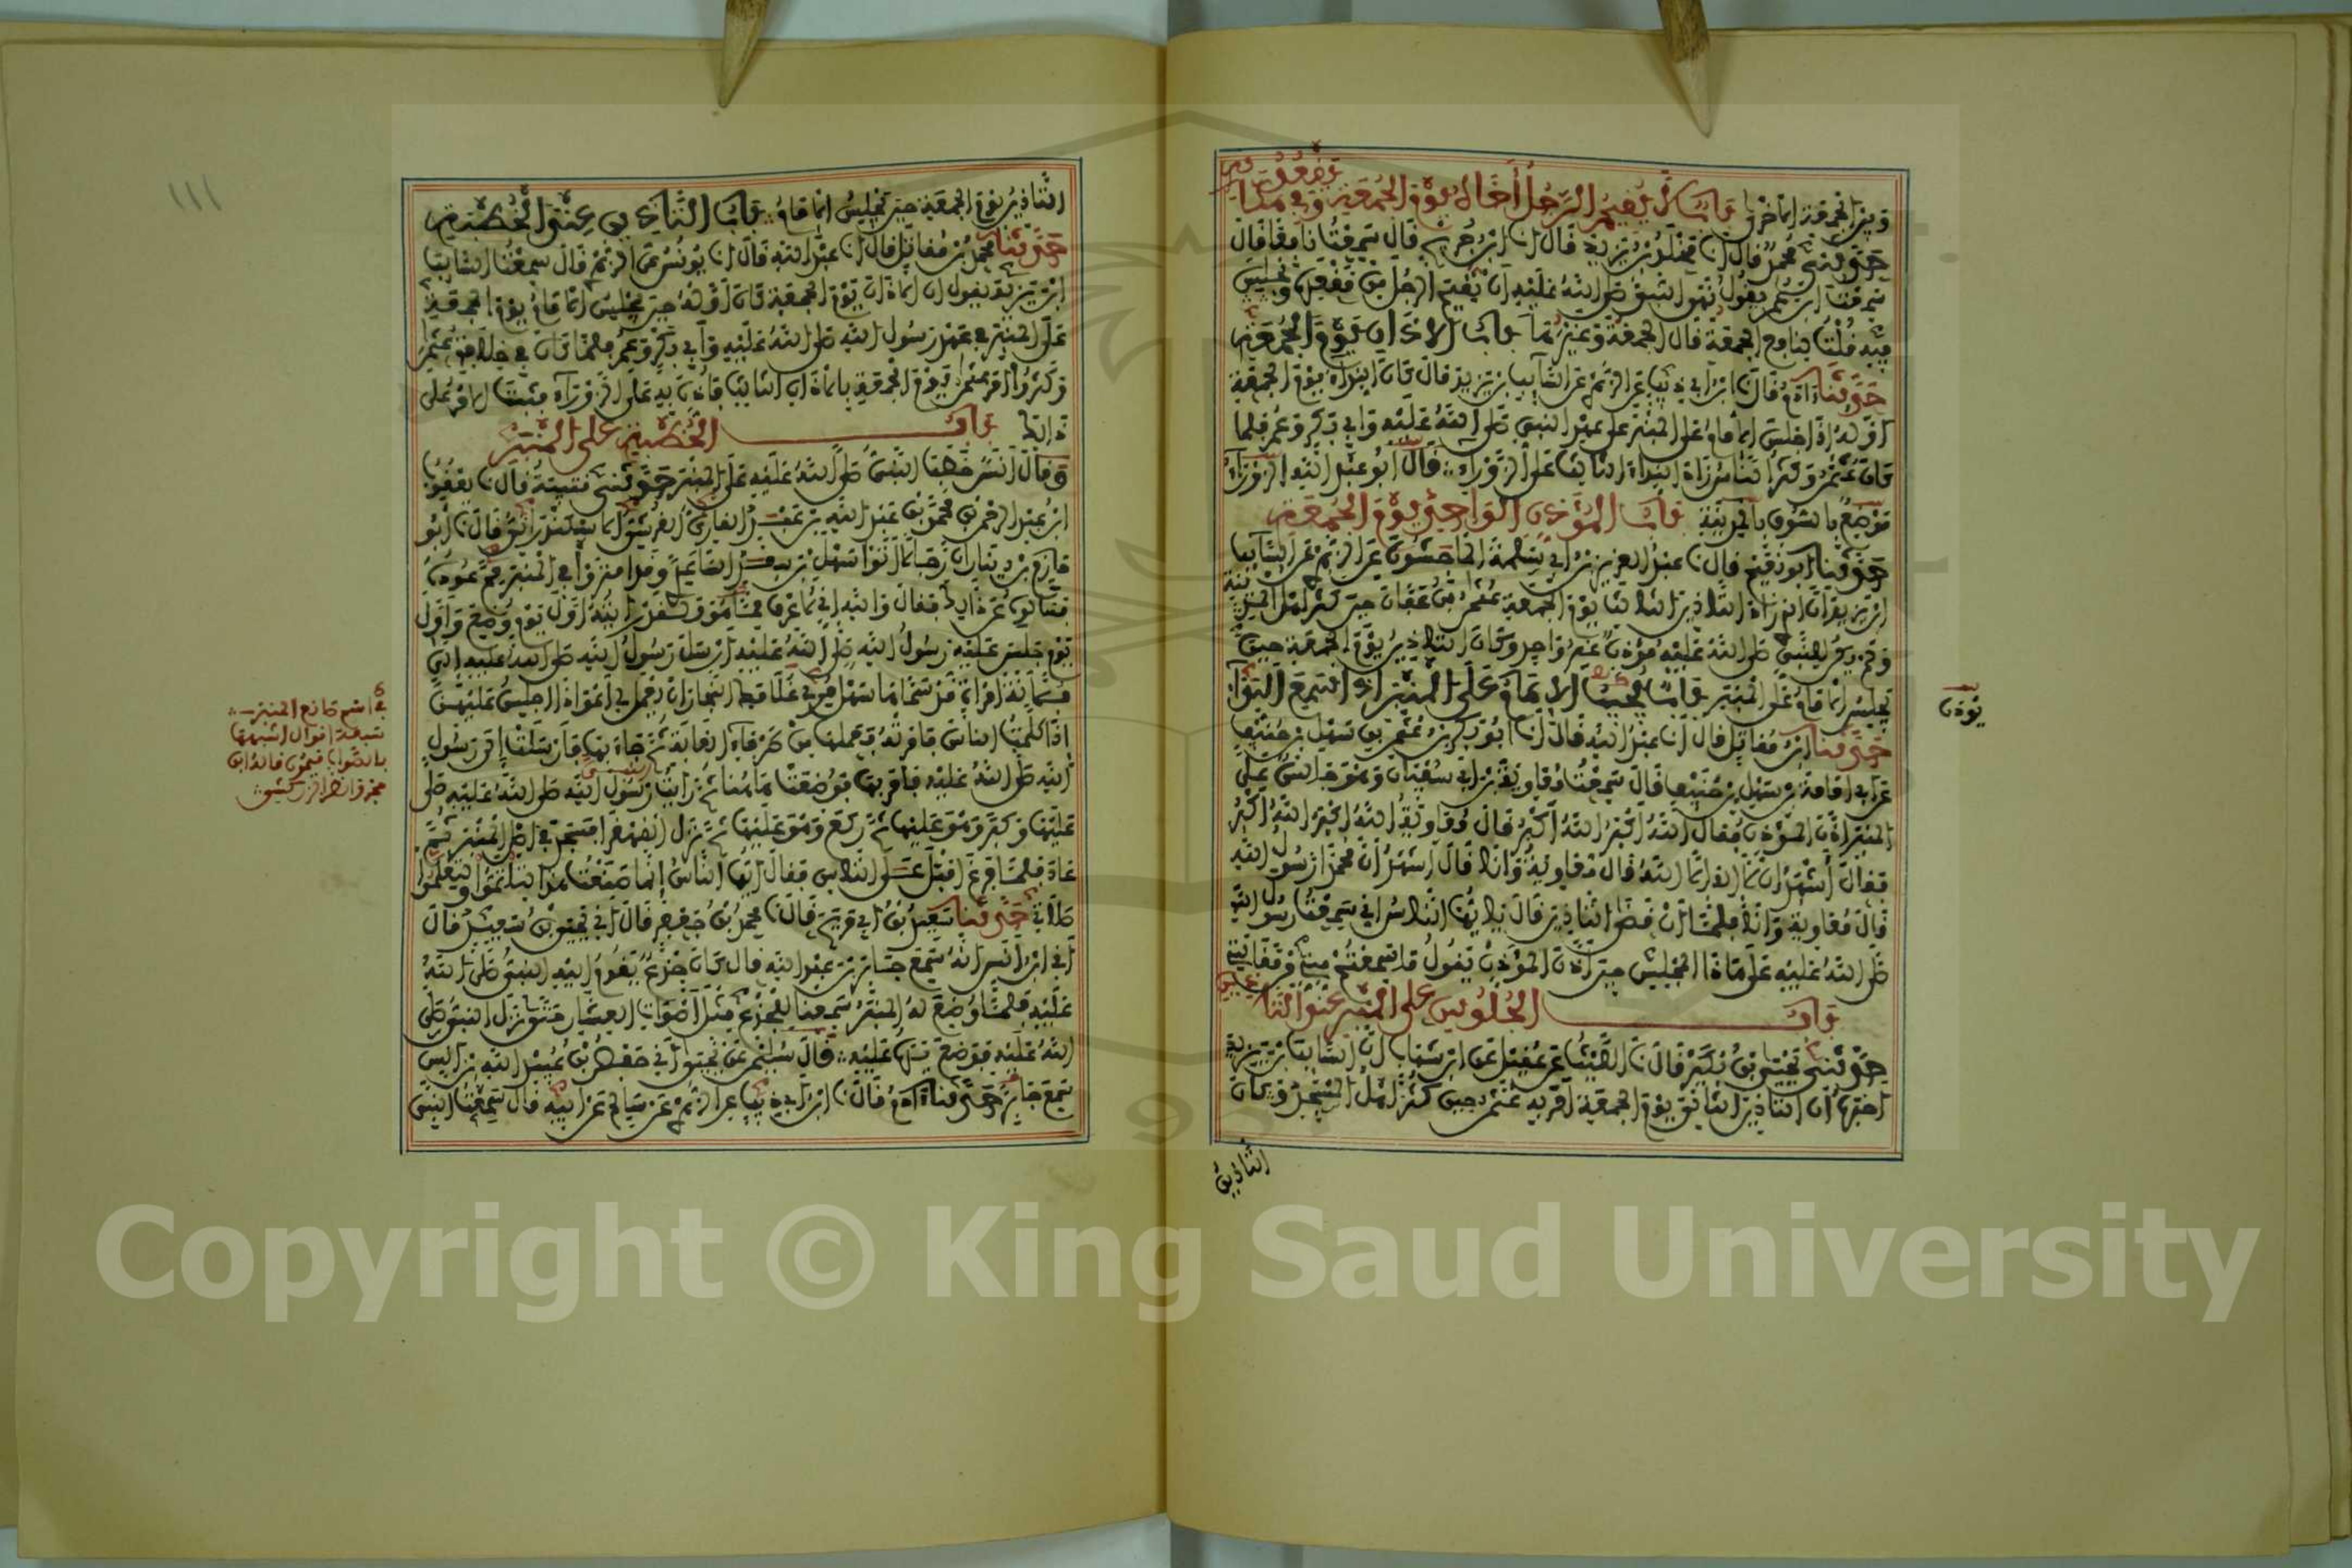 وبين الجمعة الاخرى باب لا يقيم الرجل أخاه يوم الجمعة ويقعد في مكانه
حدثني محمد قال انا مخلد بن يزيد قال انا ابن جريج قال سمعت نافعا قال
سمعت ابن عمر يقول نهى النبي صلى الله عليه ان يقيم الرجل من مقعده ويجلس
فيه قلت لنافع الجمعة قال الجمعة وغيرها باب الاذان يوم الجمعة
حدثنا ادم قال نا ابن ابي ذيب عن الزهري عن السايب بن يزيد قال كان النداء يوم الجمعة
اوله اذا جلس الامام على المنبر على عهد النبي صلى الله عليه وابي بكر وعمر فلما
كان عثمن وكثر الناس زاد النداء الثالث على الزوراء قال ابو عبد الله الزوراء
موضع بالسوق بالمدينة باب المؤذن الواحد يوم الجمعة
حدثنا ابو نعيم قال نا عبد العزيز بن ابي سلمة الماجشون عن الزهري عن السايب
ابن يزيد ان الذي زاد التاذين الثالث يوم الجمعة عثمن بن عفان حين كثر اهل المدينة
ولم يكن للنبي صلى الله عليه مؤذن غير واحد وكان التاذين يوم الجمعة حين
يجلس الامام على المنبر باب يجيب الامام على المنبر اذا سمع النداء
يؤذن
حدثنا ابن مقاتل قال انا عبد الله قال انا ابو بكر بن عثمن بن سهل بن حنيف
عن ابي امامة بن سهل بن حنيف قال سمعت معاوية بن ابي سفيان وهو جالس على
المنبر اذن المؤذن فقال الله اكبر الله اكبر قال معاوية الله اكبر الله اكبر
فقال أشهد ان لا اله الا الله قال معاوية وانا قال اشهد ان محمدا رسول الله
قال معاوية وانا فلما ان قضى التاذين قال يا ايها الناس اني سمعت رسول الله
صلى الله عليه على هاذا المجلس حين اذن المؤذن يقول ما سمعتم مني من مقالتي
باب الجلوس على المنبر عند التاذين
حدثني يحيى بن بكير قال نا الليث عن عقيل عن ابن شهاب ان السايب بن يزيد
اخبره ان التاذين الثاني يوم الجمعة امر به عثمن حين كثر اهل المسجد وكان
التاذين
١١١
التاذين يوم الجمعة حين يجلس الامام باب التاذين عند الخطبة
حدثنا محمد بن مقاتل قال انا عبد الله قال انا يونس عن الزهري قال سمعت السايب
ابن يزيد يقول ان الاذان يوم الجمعة كان اوله حين يجلس الامام يوم الجمعة
على المنبر في عهد رسول الله صلى الله عليه وابي بكر وعمر فلما كان في خلافة عثمن
وكثروا امر عثمن يوم الجمعة بالاذان الثالث فاذن به على الزوراء فثبت الامر على
ذالك باب الخطبة على المنبر
وقال انس خطب النبي صلى الله عليه على المنبر حدثني قتيبة قال نا يعقوب
ابن عبد الرحمن بن محمد بن عبد الله بن عبد القاري القرشي الاسكندراني قال نا ابو
حازم بن دينار ان رجالا اتوا سهل بن سعد الساعدي وقد امتروا في المنبر مم عوده
فسالوه عن ذالك فقال والله اني لاعرف مما هو ولقد رايته اول يوم وضع واول
يوم جلس عليه رسول الله صلى الله عليه ارسل رسول الله صلى الله عليه الى
فلانة امراة قد سماها سهل مري غلامك النجار ان يعمل لي اعوادا اجلس عليهن
اذا كلمت الناس فامرته فعملها من طرفاء الغابة ثم جاء بها فارسلت الى رسول
الله صلى الله عليه فامر بها فوضعت هاهنا ثم رايت رسول الله صلى الله عليه صلى
عليها وكبر وهو عليها ثم ركع وهو عليها ثم نزل القهقرا فسجد في اصل المنبر ثم
عاد فلما فرغ اقبل على الناس فقال ايها الناس إنما صنعت هذا لتاتموا ولتعلموا
صلاتي حدثنا سعيد بن ابي مريم قال نا محمد بن جعفر قال اني يحيى بن سعيد قال
اني ابن انس انه سمع جابر بن عبد الله قال كان جذع يقوم اليه النبي صلى الله
عليه فلما وضع له المنبر سمعنا للجذع مثل أصوات العشار حتى نزل النبي صلى
الله عليه فوضع يده عليه قال سليمن عن يحيى اني حفص بن عبيد الله بن انس
سمع جابرا حدثنا ادم قال نا ابن ابي ذيب عن الزهري عن سالم عن ابيه قال سمعت النبي
في اسم صانع المنبر
سبعة اقوال اشبهها
بالصواب ميمون قاله ابن
حجر وانظر الزركشي
Copyright © King Saud University